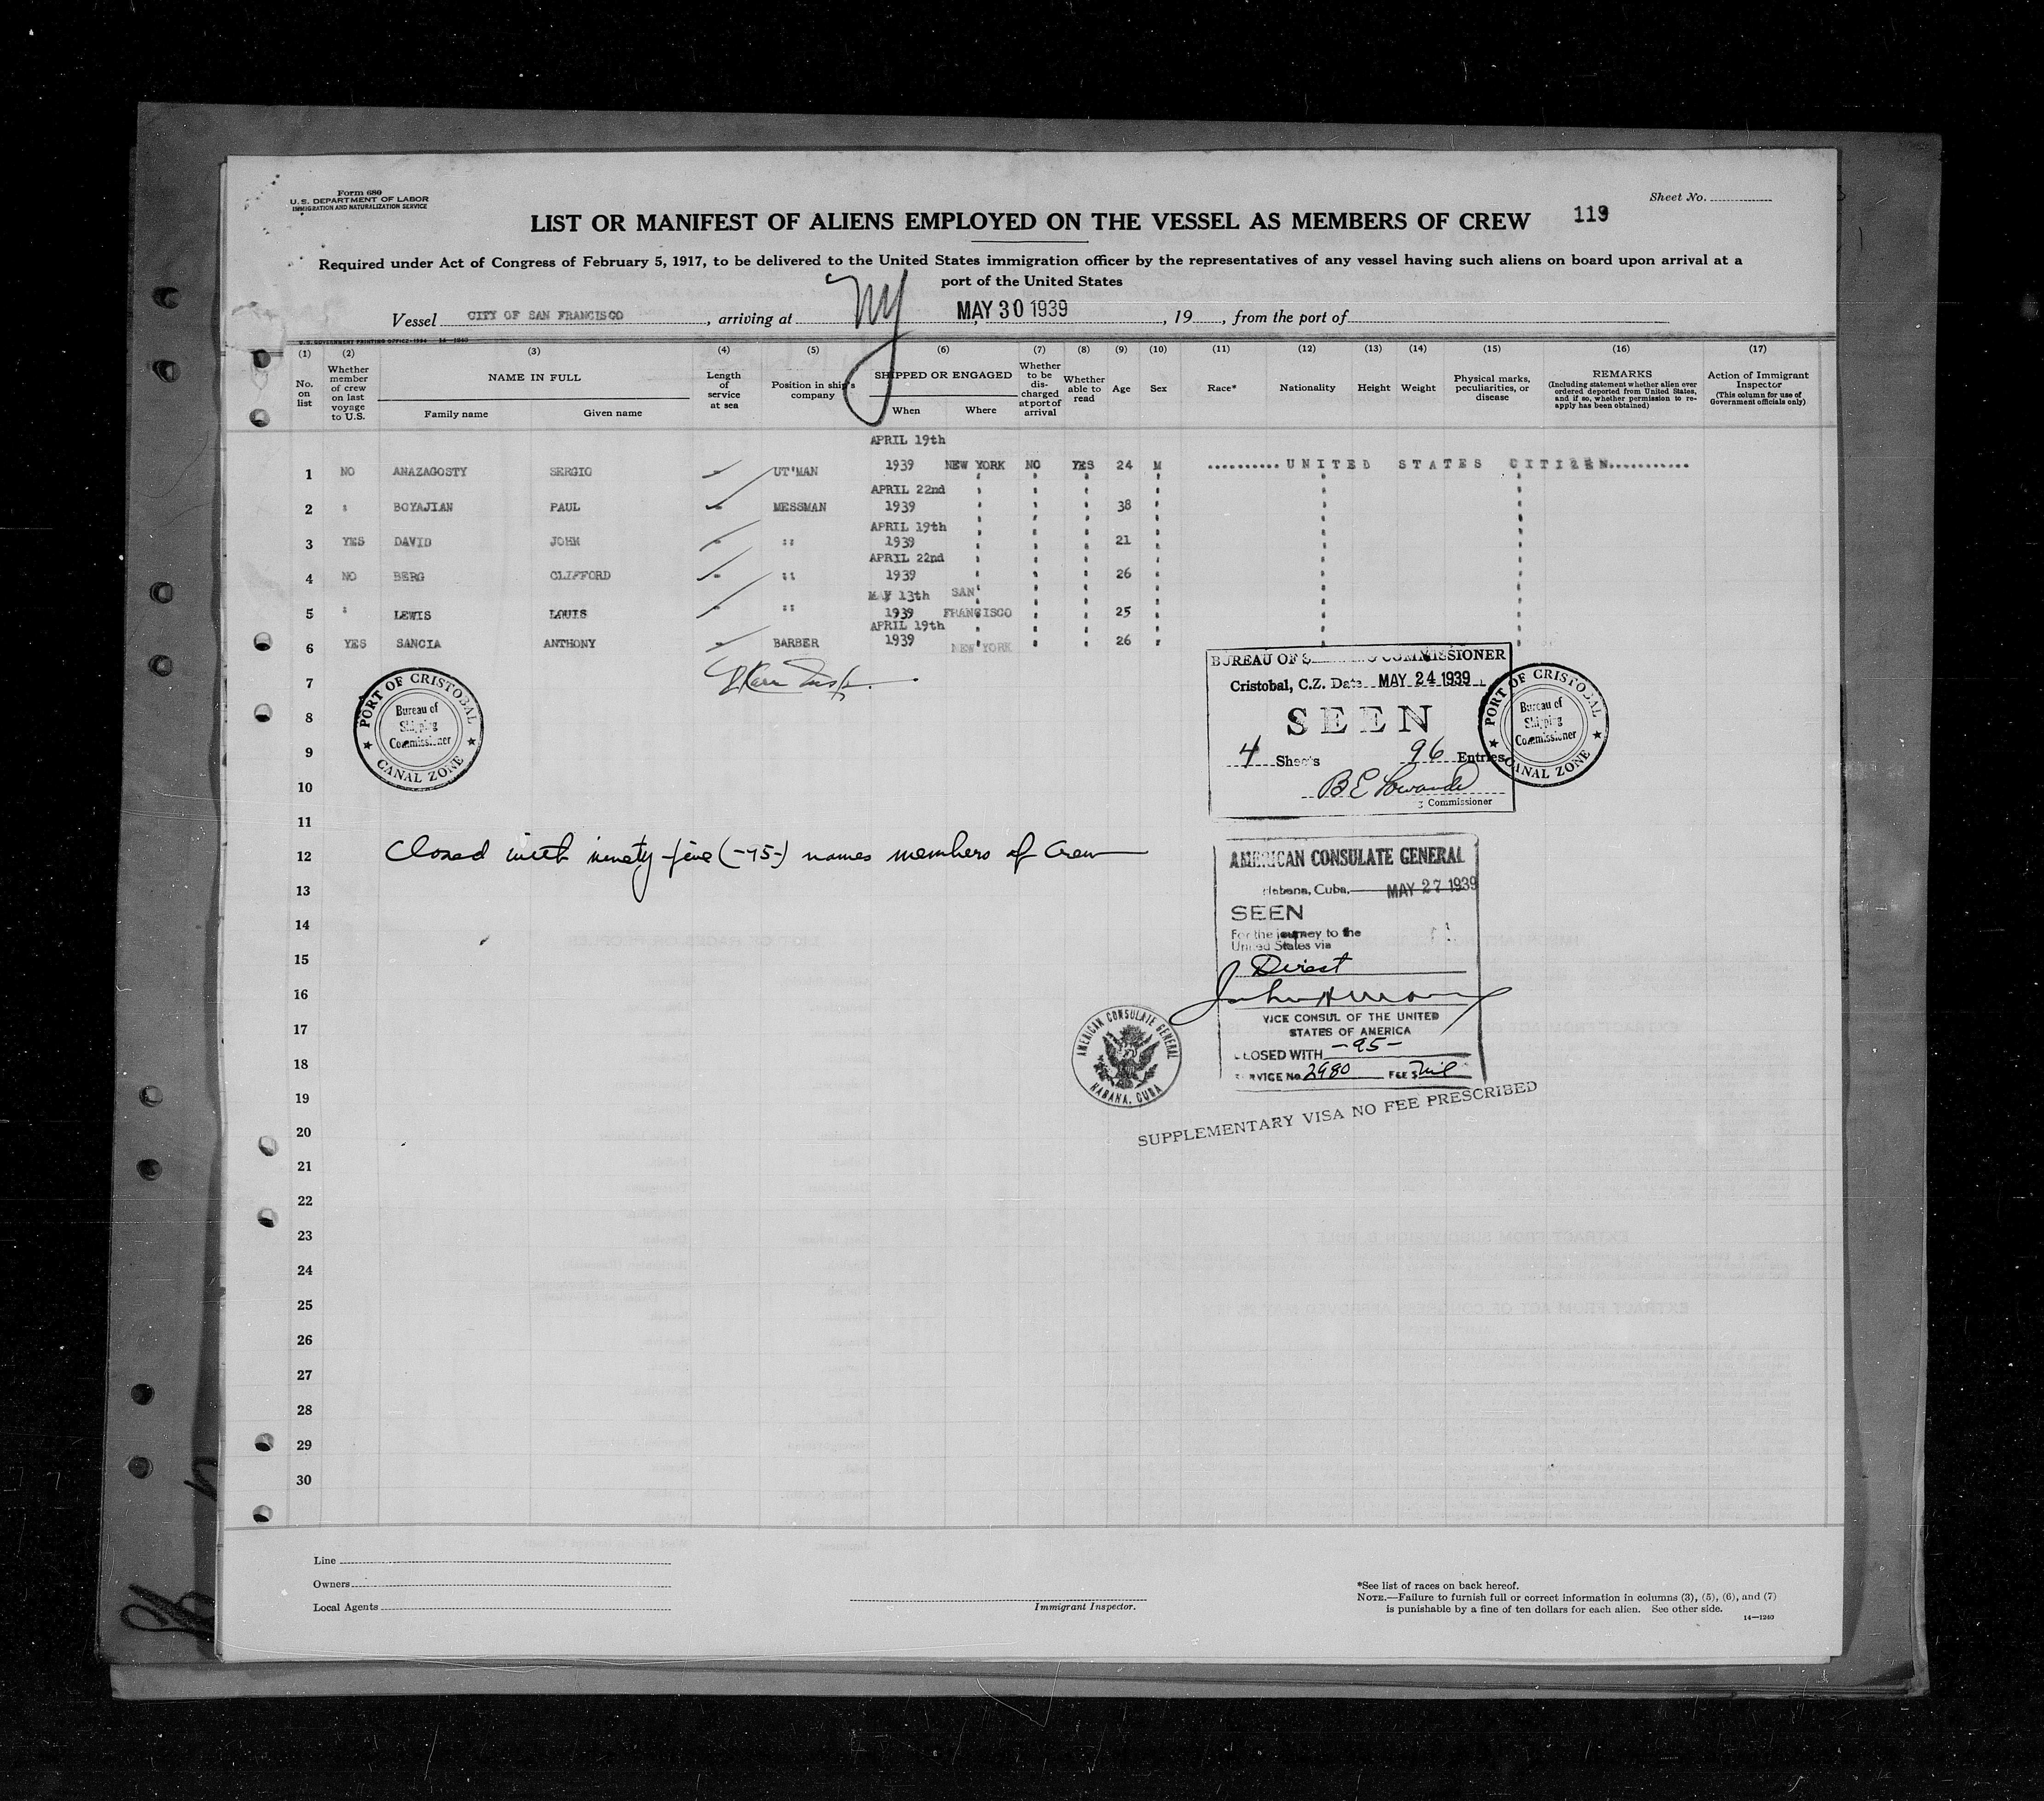 Form 680
U. S. DEPARTMENT OF LABOR
IMMIGRATION AND NATURALIZATION SERVICE
Sheet No.
LIST OR MANIFEST OF ALIENS EMPLOYED ON THE VESSEL AS MEMBERS OF CREW 119
Required under Act of Congress of February 5, 1917, to be delivered to the United States immigration officer by the representatives of any vessel having such aliens on board upon arrival at a
port of the United States
Vessel CITY OF SAN FRANCISCO, arriving at NY MAY 30 1939, 19, from the port of
U. S. GOVERNMENT PRINTING OFFICE 14—1240
(1) (2) (3) (4) (5) (6) (7) (8) (9) (10) (11) (12) (13) (14) (15) (16) (17)
No. on list
Whether member of crew on last voyage to U.S.
NAME IN FULL
Family name Given name
Length of service at sea
Position in ship's company
SHIPPED OR ENGAGED
When Where
Whether to be discharged at port of arrival
Whether able to read
Age
Sex
Race*
Nationality
Height
Weight
Physical marks, peculiarities, or disease
REMARKS
(Including statement whether alien ever ordered deported from United States, and if so, whether permission to re-apply has been obtained)
Action of Immigrant Inspector
(This column for use of Government officials only)
APRIL 19th
1 NO ANAZAGOSTY SERGIO UT'MAN 1939 NEW YORK NO YES 24 M ..........UNITED STATES CITIZEN...........
APRIL 22nd
2 " BOYAJIAN PAUL MESSMAN 1939 " " " 38 "
APRIL 19th
3 YES DAVID JOHN " 1939 " " " 21 "
APRIL 22nd
4 NO BERG CLIFFORD " 1939 " " " 26 "
MAY 13th SAN
5 " LEWIS LOUIS " 1939 FRANCISCO " " 25 "
APRIL 19th
6 YES SANCIA ANTHONY BARBER 1939 NEW YORK " " 26 "
7
8
9
10
11
12 Closed with ninety-five (-95-) names members of Crew
13
14
15
16
17
18
19
20
21
22
23
24
25
26
27
28
29
30
PORT OF CRISTOBAL
Bureau of
Shipping
Commissioner
CANAL ZONE
BUREAU OF S COMMISSIONER
Cristobal, C.Z. Date MAY 24 1939
SEEN
4 Sheets 96 Entries
Commissioner
PORT OF CRISTOBAL
Bureau of
Shipping
Commissioner
CANAL ZONE
AMERICAN CONSULATE GENERAL
Habana, Cuba, MAY 27 1939
SEEN
For the journey to the
United States via
Direct
VICE CONSUL OF THE UNITED
STATES OF AMERICA
CLOSED WITH -95-
SERVICE No. 2980 FEE $ Nil
AMERICAN CONSULATE GENERAL
HABANA, CUBA
SUPPLEMENTARY VISA NO FEE PRESCRIBED
Line
Owners
Local Agents
Immigrant Inspector.
*See list of races on back hereof.
NOTE.—Failure to furnish full or correct information in columns (3), (5), (6), and (7)
is punishable by a fine of ten dollars for each alien. See other side.
14—1240